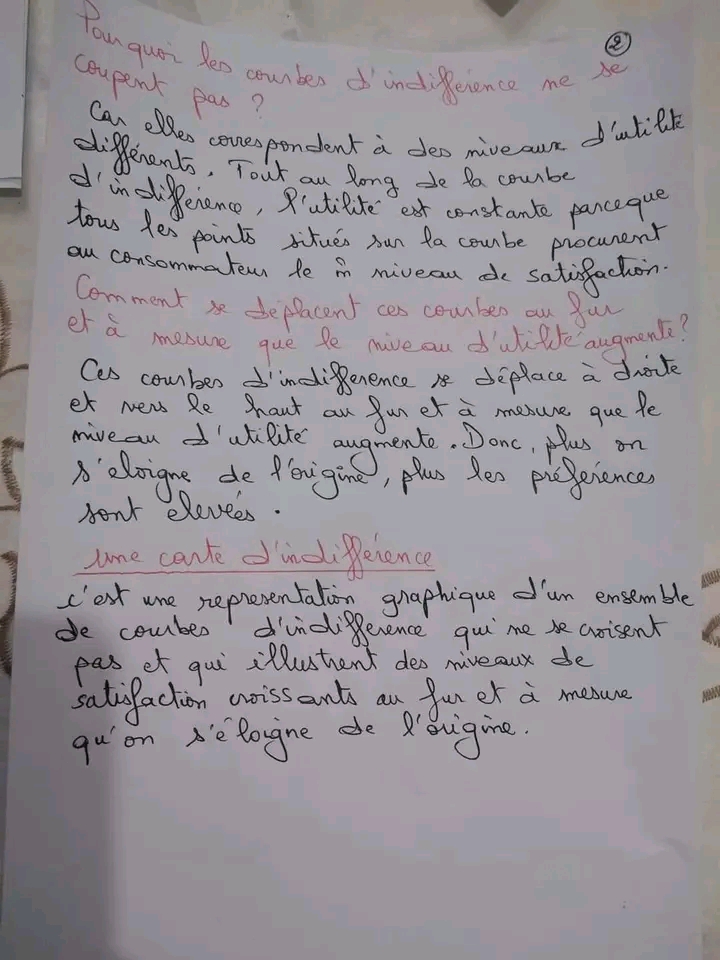 ②
Pourquoi les courbes d'indifférence ne se
coupent pas ?
Car elles correspondent à des niveaux d'utilité
différents. Tout au long de la courbe
d'indifférence, l'utilité est constante parceque
tous les points situés sur la courbe procurent
au consommateur le m̂ niveau de satisfaction.
Comment se déplacent ces courbes au fur
et à mesure que le niveau d'utilité augmente ?
Ces courbes d'indifférence se déplace à droite
et vers le haut au fur et à mesure que le
niveau d'utilité augmente. Donc, plus on
s'eloigne de l'origine, plus les préférences
sont elevées.
une carte d'indifférence
c'est une representation graphique d'un ensemble
de courbes d'indifférence qui ne se croisent
pas et qui illustrent des niveaux de
satisfaction croissants au fur et à mesure
qu'on s'éloigne de l'origine.